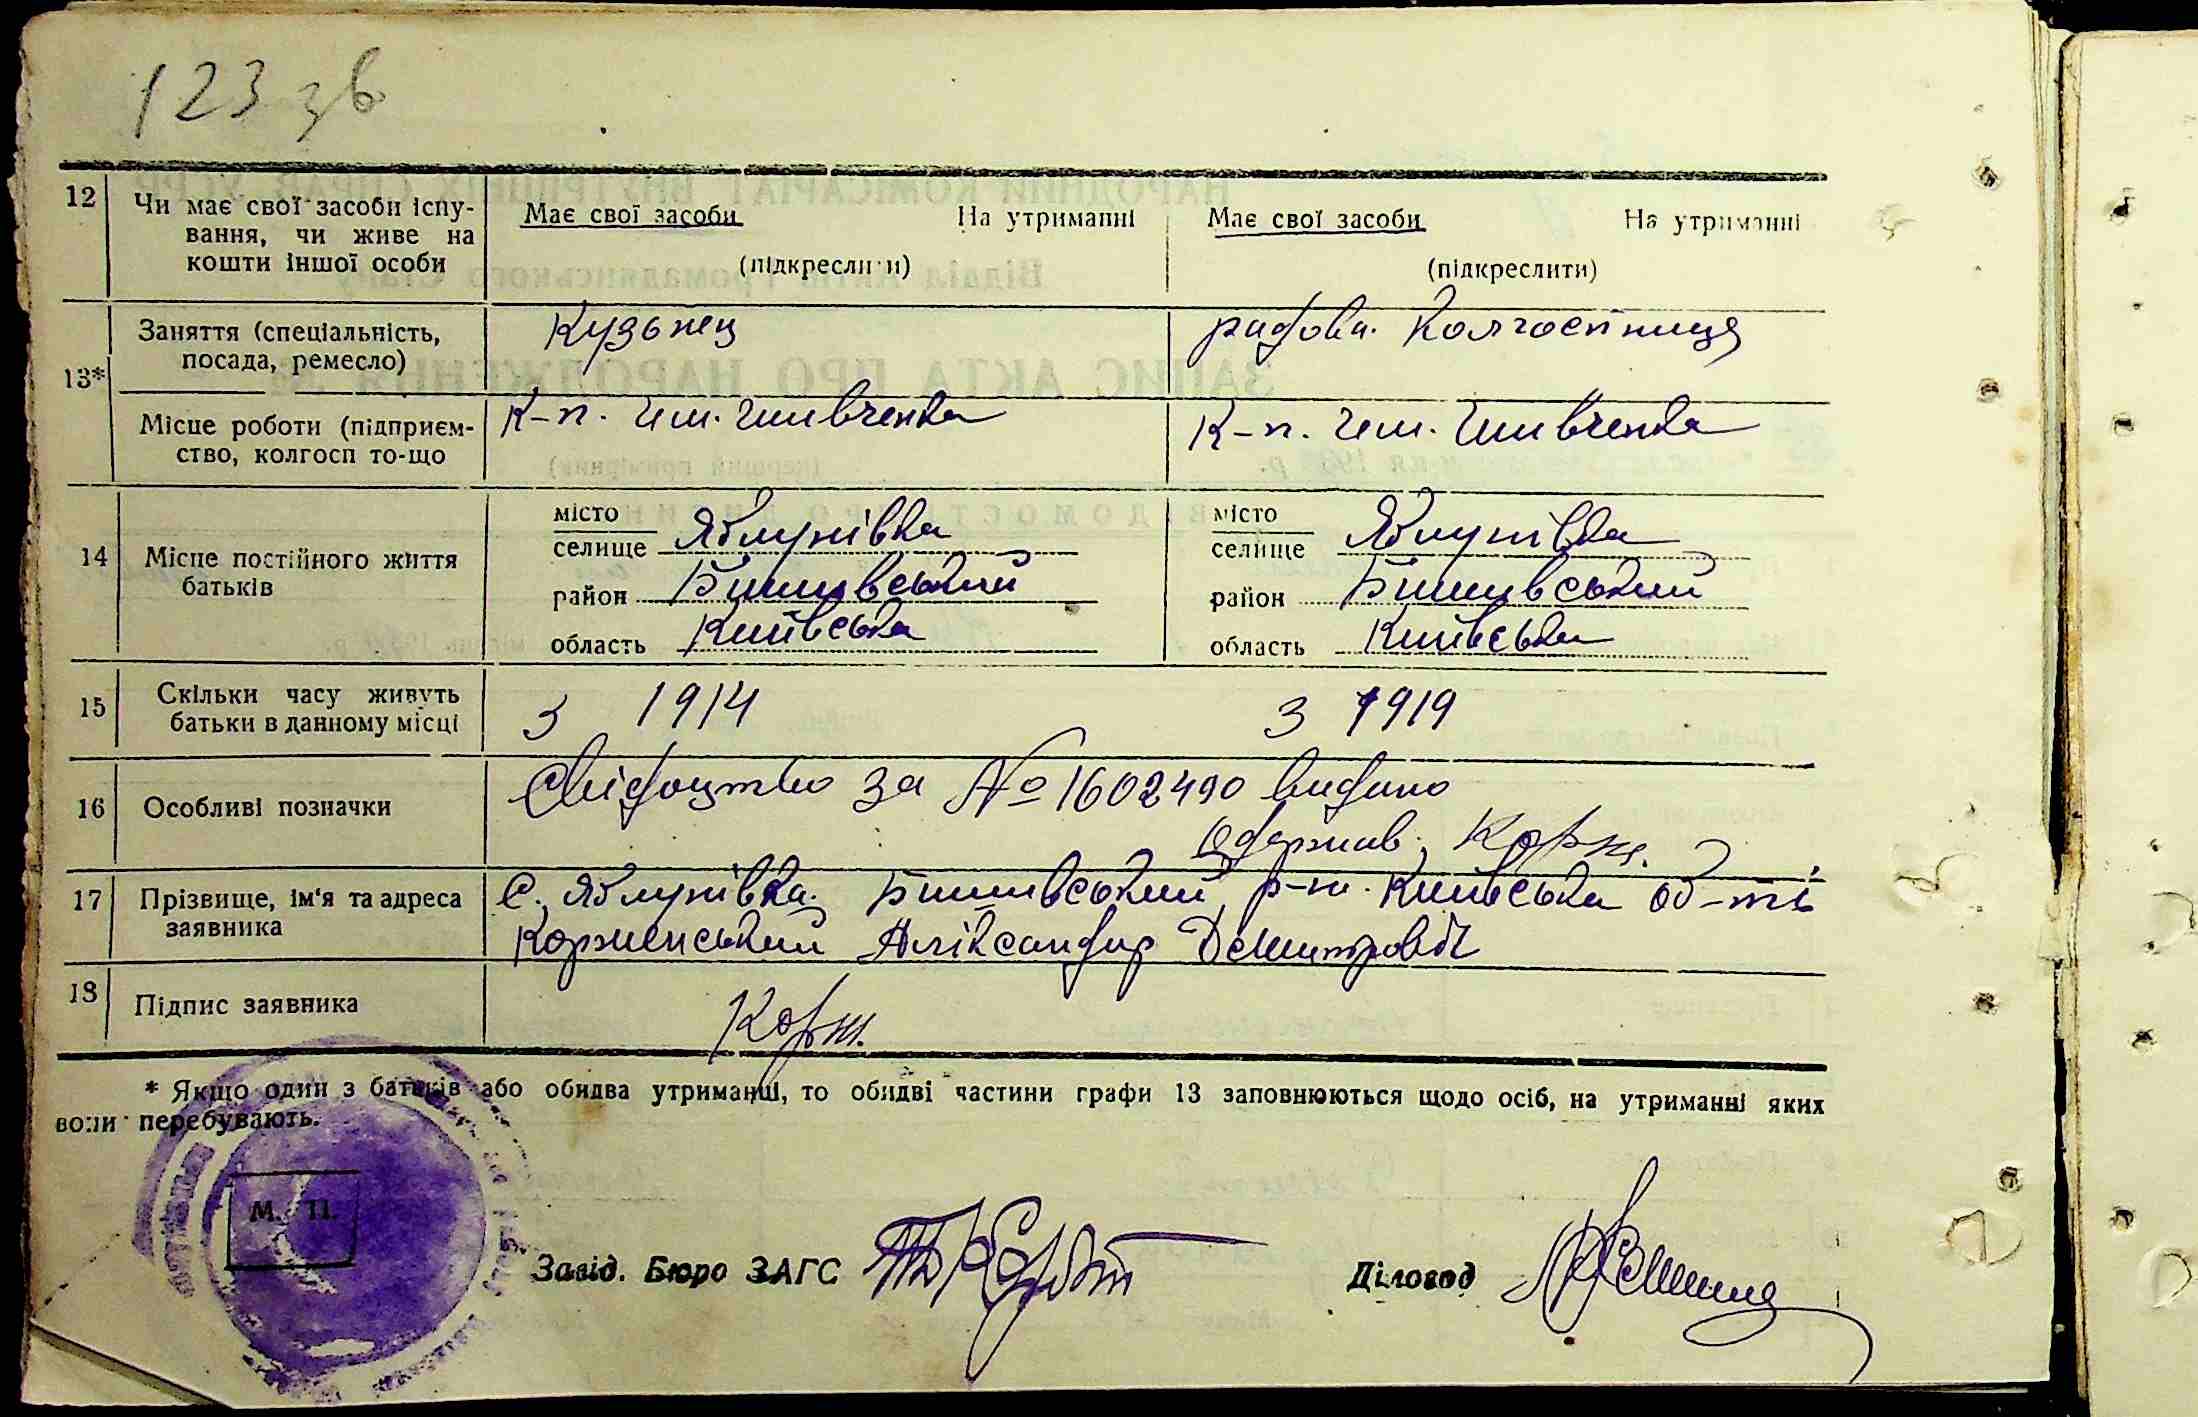 123 зв
12 Чи має свої засоби існу-
вання, чи живе на
кошти іншої особи
Має свої засоби На утриманні
(підкреслити)
Має свої засоби На утриманні
(підкреслити)
13* Заняття (спеціальність,
посада, ремесло)
Кузьнец
рядова. Колгоспниця
Місце роботи (підприєм-
ство, колгосп то-що
К-п. Им. Шивченка
К-п. Им. Шивченка
14 Місце постійного життя
батьків
місто
селище Яблунівка
район Бишівський
область Київська
місто
селище Яблунівка
район Бишівський
область Київська
15 Скільки часу живуть
батьки в данному місці
з 1914
З 1919
16 Особливі позначки
Свідоцтво за № 1602490 видано
Одержав. Корж.
17 Прізвище, ім'я та адреса
заявника
С. Яблунівка. Бишівський р-н. Київська об-ть
Корженський Аліксандир Дємитровіч
18 Підпис заявника
Корж.
* Якщо один з батьків або обидва утриманці, то обидві частини графи 13 заповнюються щодо осіб, на утриманні яких
вони перебувають.
М. П.
Завід. Бюро ЗАГС
Діловод